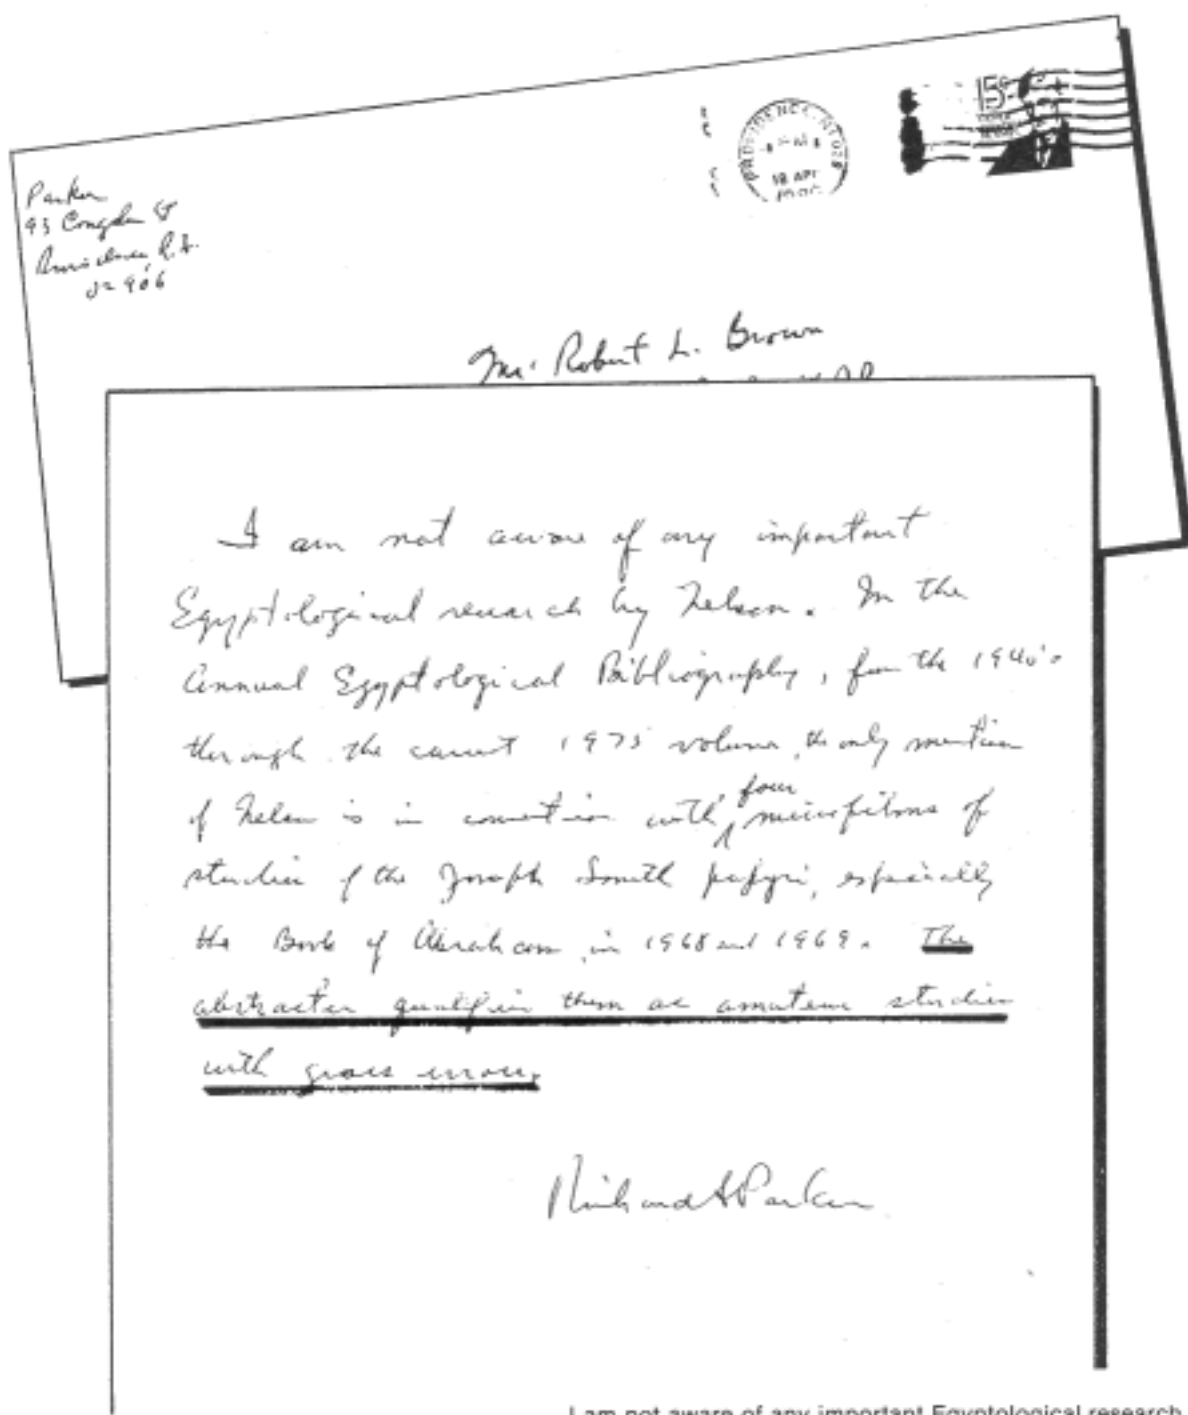 Parker
93 Congdon St
Providence, R.I.
02906
PROVIDENCE, RI 029
PM
18 APR
15c
Mr. Robert L. Brown
I am not aware of any important
Egyptological research by Nelson. In the
Annual Egyptological Bibliography, from the 1940's
through the current 1975 volume, the only mention
of Nelson is in connection with four microfilms of
studies of the Joseph Smith papyri, especially
the Book of Abraham, in 1968 and 1969. The
abstracter qualifies them as amateur studies
with gross errors.
Richard A Parker
I am not aware of any important Egyptological research